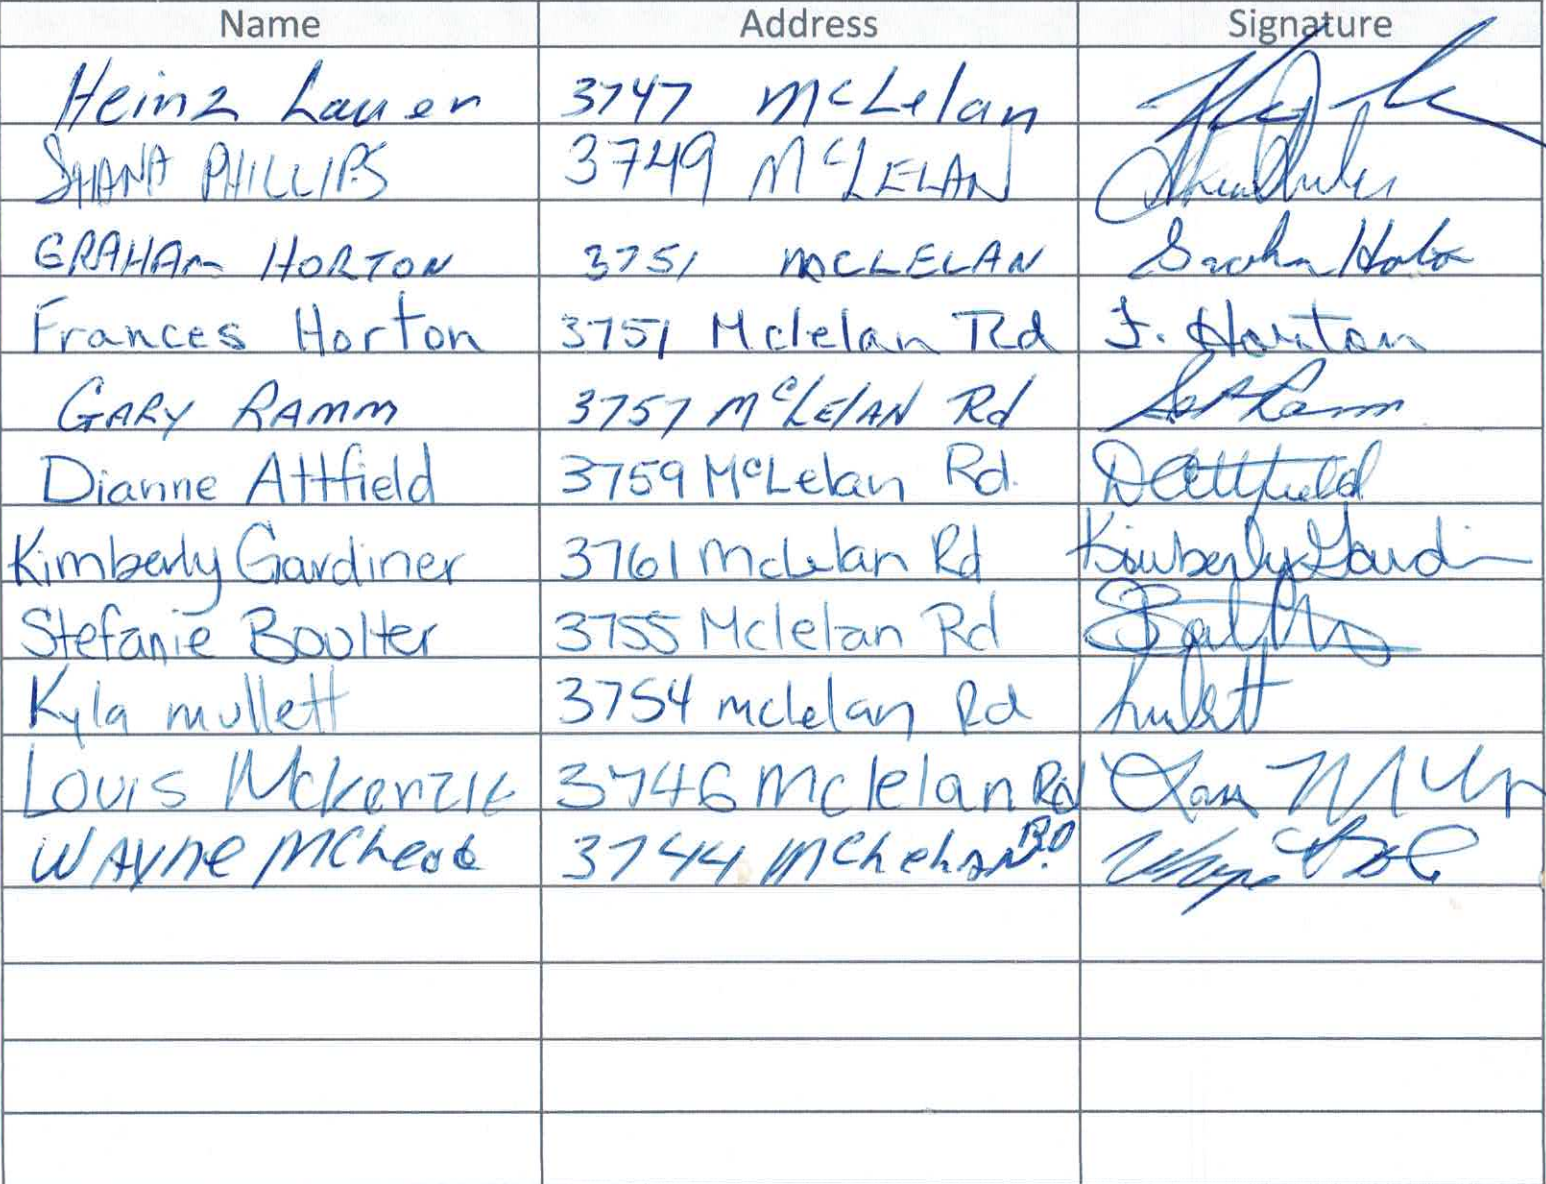 Name Address Signature
Heinz Lauer 3747 McLelan
SHANA PHILLIPS 3749 McLELAN
GRAHAM HORTON 3751 McLELAN
Frances Horton 3751 Mclelan Rd F. Horton
GARY RAMM 3757 McLelAN Rd
Dianne Attfield 3759 McLelan Rd. D Attfield
Kimberly Gardiner 3761 McLelan Rd Kimberly Gardin
Stefanie Boulter 3755 Mclelan Rd
Kyla mullett 3754 mclelan Rd
Louis Mckenzie 3746 Mclelan Rd
WAYNE 3744 McLelAN RD.